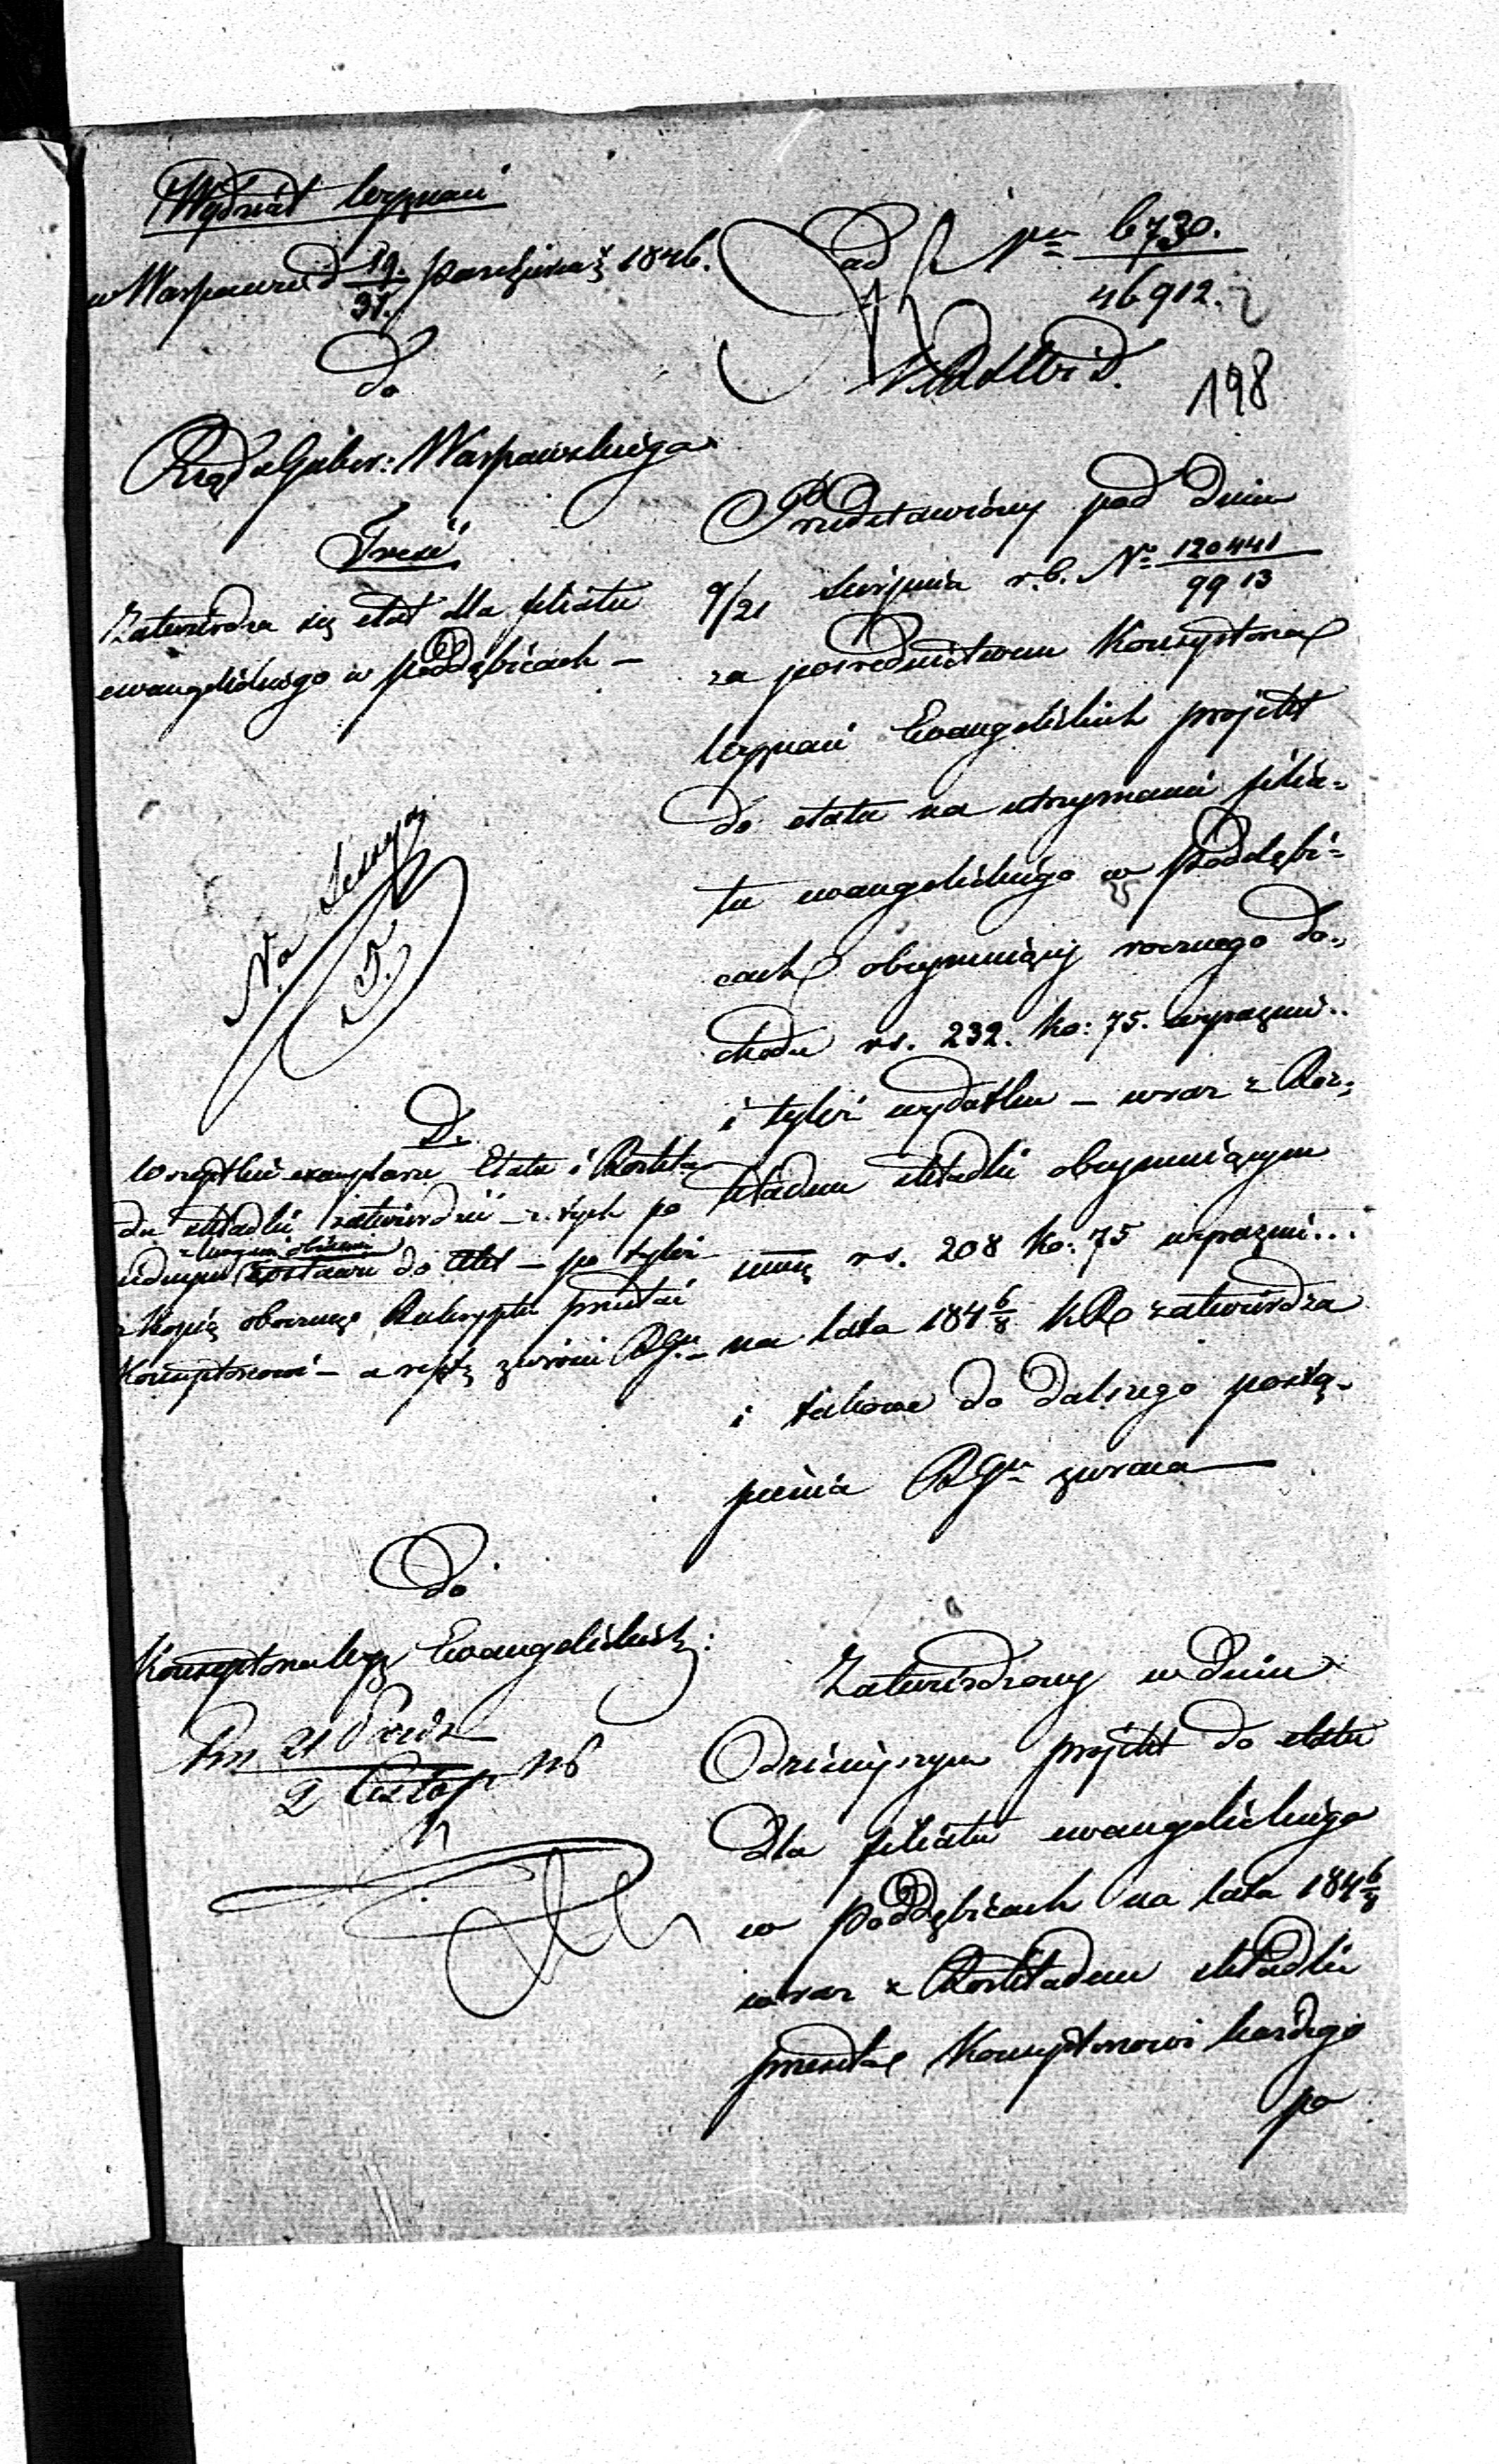 Wydział Wyznań
w Warszawie d 19/31. Października 1846.
ad Nr 6730.
46912.
198
do
Rządu Guber: Warszawskiego
Treść
Zatwierdza się etat dla filiału
ewangelickiego w Poddębicach –
Przedstawiony pod dniem
9/21 Sierpnia r. b. No 120441
9913
za pośrednictwem Konsystorza
Wyznań Ewangelickich projekt
do etatu na utrzymanie filia=
łu ewangelickiego w Poddębi=
cach obejmujący rocznego do=
chodu rs. 232. ko: 75. wyraźnie..
i tyleż wydatku – wraz z Roz=
kładem składki obejmującym
summę rs. 208 ko: 75 wyraźnie...
na lata 184 6/8 KR zatwierdza
i takowe do dalszego postą=
pienia RGu zwraca
Na Sessyi
5.
D.
Wszystkie exemplarze Etatu i Rozkła
du składki zatwierdzić – z tych po
jednym zostawić do Akt – po tyleż
z kopią obecnego Reskryptu przesłać
Konsystorzowi – a resztę zwrócić RGu –
do
Konsystorza Wyz Ewangelickich:
21 Paźdz
2 Listop 46
Zatwierdzony w dniu
dzisiejszym projekt do etatu
dla filiału ewangelickiego
w Poddębicach na lata 184 6/8
wraz z Rozkładem składki
przesyła Konsystorzowi każdego
po